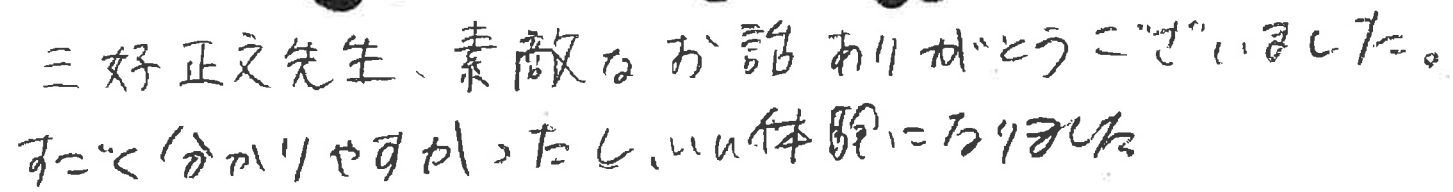 三好正文先生、素敵なお話ありがとうございました。
すごく分かりやすかったし、いい体験になりました